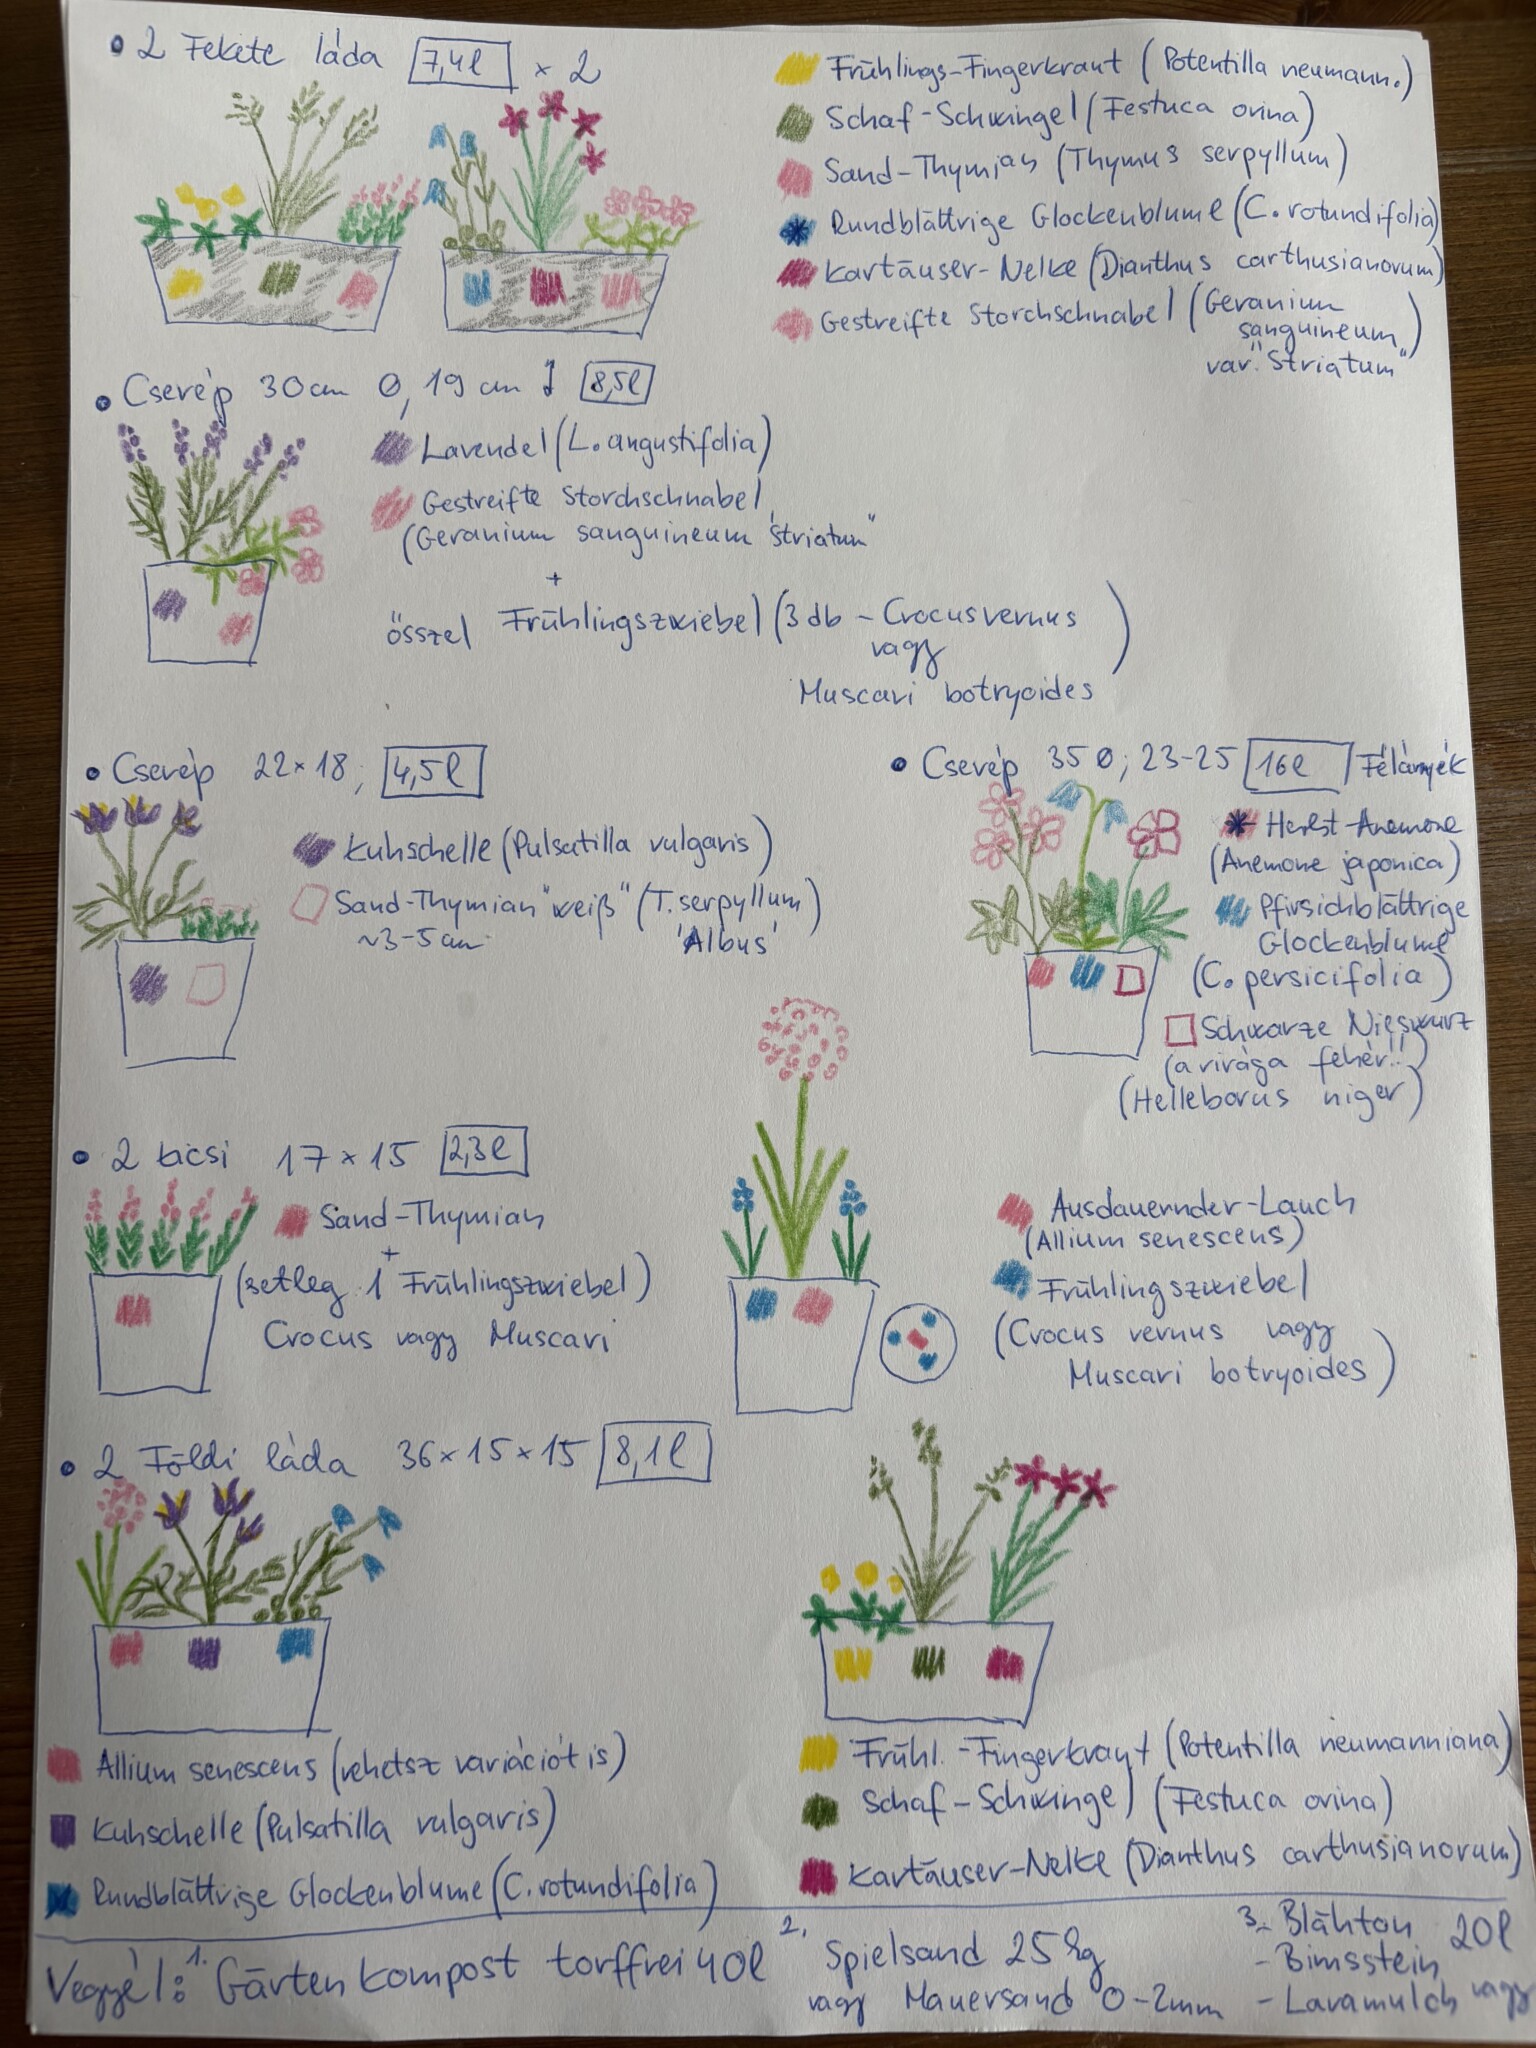 • 2 Fekete láda 7,4l × 2
Frühlings-Fingerkraut (Potentilla neumann.)
Schaf-Schwingel (Festuca ovina)
Sand-Thymian (Thymus serpyllum)
Rundblättrige Glockenblume (C. rotundifolia)
Kartäuser-Nelke (Dianthus carthusianorum)
Gestreifte Storchschnabel (Geranium
sanguineum)
var. "Striatum"
• Cserép 30cm Ø, 19 cm ↕ 8,5l
Lavendel (L. angustifolia)
Gestreifte Storchschnabel
(Geranium sanguineum "Striatum"
+
ősszel Frühlingszwiebel (3 db - Crocus vernus
vagy
Muscari botryoides)
• Cserép 22×18; 4,5l
Kuhschelle (Pulsatilla vulgaris)
Sand-Thymian "weiß" (T. serpyllum)
~3-5 cm 'Albus'
• Cserép 35 Ø; 23-25 16l Félárnyék
Herbst-Anemone
(Anemone japonica)
Pfirsichblättrige
Glockenblume
(C. persicifolia)
Schwarze Nieswurz
(a virága fehér!!)
(Helleborus niger)
• 2 bicsi 17×15 2,3l
Sand-Thymian
+
(setleg 1 Frühlingszwiebel)
Crocus vagy Muscari
Ausdauernder-Lauch
(Allium senescens)
Frühlingszwiebel
(Crocus vernus vagy
Muscari botryoides)
• 2 Földi láda 36×15×15 8,1l
Allium senescens (vehetsz variációt is)
Kuhschelle (Pulsatilla vulgaris)
Rundblättrige Glockenblume (C. rotundifolia)
Frühl.-Fingerkraut (Potentilla neumanniana)
Schaf-Schwingel (Festuca ovina)
Kartäuser-Nelke (Dianthus carthusianorum)
Vegyél: 1. Gärten kompost torffrei 40l
2. Spielsand 25 kg
vagy Mauersand 0-2mm
3. - Blähton 20l
- Bimsstein
- Lavamulch vagy